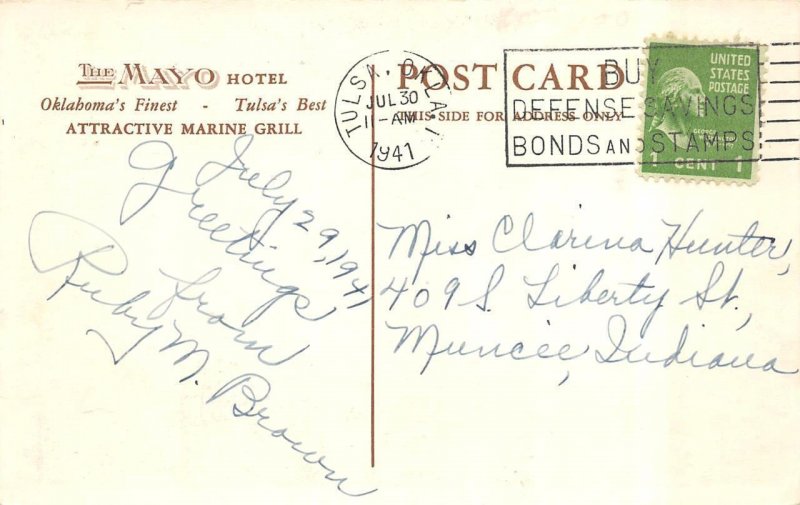 THE MAYO HOTEL
Oklahoma's Finest - Tulsa's Best
ATTRACTIVE MARINE GRILL
July 29, 1941
Greetings
from
Ruby M. Brown
POST CARD
THIS SIDE FOR ADDRESS ONLY
TULSA, OKLA.
JUL 30
11-AM
1941
BUY
DEFENSE SAVINGS
BONDS AND STAMPS
UNITED
STATES
POSTAGE
1 CENT 1
Miss Clarina Hunter,
409 S. Liberty St.,
Muncie, Indiana